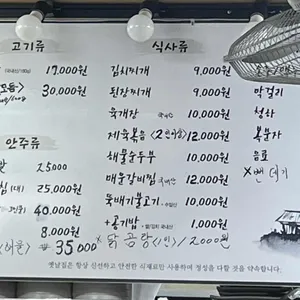 고기류
17,000원
30,000원
안주류
25000
25,000원
40,000원
8,000원
35000
식사류
김치찌개 9,000원
된장찌개 9,000원
육개장 10,000원
제육볶음 <2인이상> 12,000원
해물순두부 10,000원
매운갈비찜 12,000원
뚝배기불고기 10,000원
+공기밥 1,000원
*닭곰탕 12000원
막걸리
청하
복분자
음료
*뻔데기
옛날집은 항상 신선하고 안전한 식재료만 사용하며 정성을 다할 것을 약속합니다.